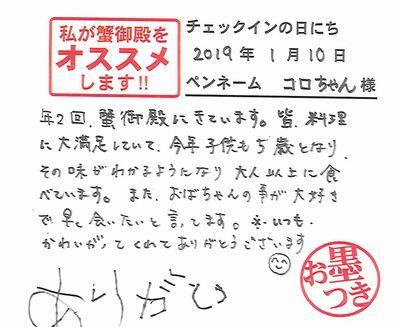 私が蟹御殿を
オススメ
します!!
チェックインの日にち
2019年1月10日
ペンネーム コロちゃん様
年2回、蟹御殿にきています。皆、料理
に大満足していて、今年子供も5歳となり、
その味がわかるようになり大人以上に食
べています。また、おばちゃんの事が大好き
で早く会いたいと言ってます。※いつも
かわいがってくれてありがとうございます
ありがとう
お墨つき